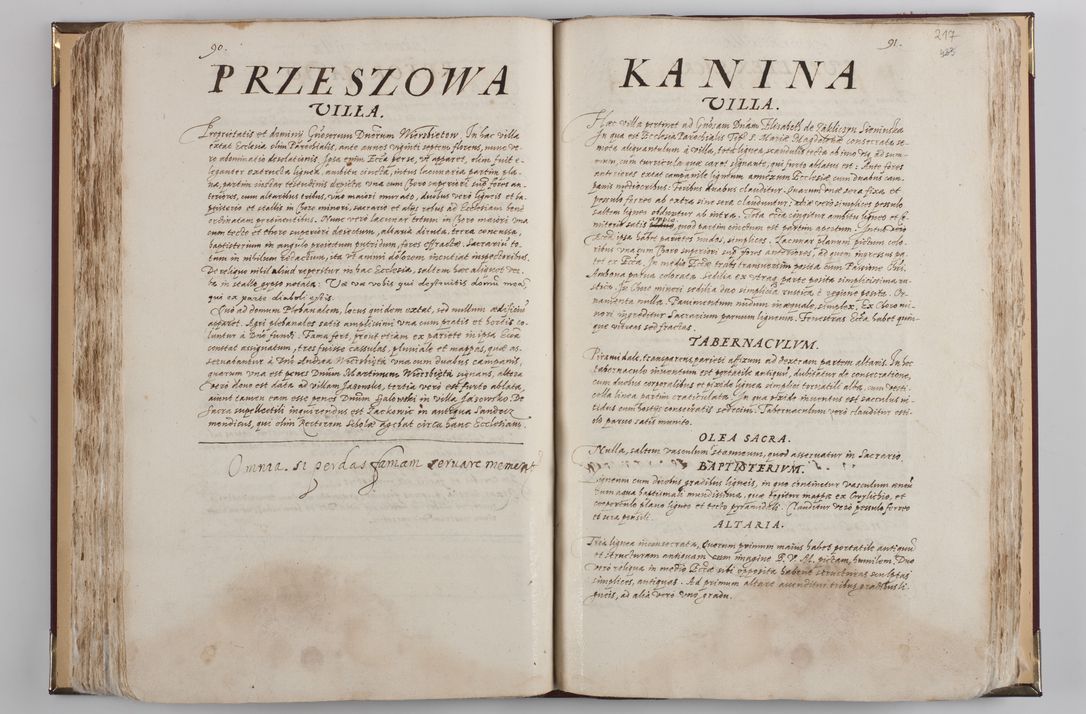 90.
PRZESZOWA
VILLA.
Proprietatis et dominij Gnosorum Dnorum Wiersbietow. In hac villa
extat Ecclesia olim Parochialis, ante annos viginti septem florens, nunc ve-
re abominatio desolationis. Ipsa enim Eccła perse, ut apparet, olim fuit e-
leganter extructa lignea, ambitu cincta, intus lacunaria partim pla-
na, partim instar testudinis depicta una cum Choro superiori sup fores an-
teriores, cum altaribus tribus, uno maiori murato, duobus vero ligneis et ba-
ptisterio et scallis in Choro minori, sacrario et alijs rebus ad Ecclesiam bene
ordinatam pertinentibus. Nunc vero lacunar totum in Choro maiori una
cum tecto et choro superiori deiectum, altaria diruta, terra concussa,
baptisterium in angulo proiectum putridum, fores effractae, Sacrarium to-
tum in nihilum redactum, ita ut animi dolorem incutiat inspectoribus.
De reliquo nihil aliud reperitur in hac Ecclesia, saltem haec aliquot ver-
ba, in scallo gypso notata: Vae vae vobis qui destruitis domum meam,
qui ex parte diaboli estis.
Quo ad domum Plebanalem, locus quidem extat, sed nullum aedificium
apparet. Agri plebanales satis amplissimi una cum pratis et hortis co-
luntur à Dno fundi. Fama fert, prout etiam ex pariete in ipsa Eccła
constat assignatum, tres fuisse casulas, pluviale et mappas, quae as-
servabantur à Dno Andrea Wiersbięta una cum duabus campanis,
quarum una est penes Dnum Martinum Wiersbięta signans, altera
vero dono est data ad villam Jasowsko, tertia vero est furto ablata,
aiunt tamen eam esse penes Dnum Galowski in villa Jasowsko. De
sacra supellectili inquirendus est Packowic in antiqua Sandecz
mendicus, qui olim Rectorem scholae agebat circa hanc Ecclesiam.
Omnia si perdas famam servare memento
91.
217
KANINA
VILLA.
Haec villa pertinet ad Gnosam Dnam Elisabeth de Zakliczyn Sieninska
In qua est Ecclesia Parochialis Tit: S. Mariae Magdalenae consecrata re-
mota aliquantulum à villa, tota lignea, scandulis tecta ab imo usq ad sum-
mum, cum turricula quae caret signante, qui furto ablatus est: Ante fores
anteriores extat campanile ligneum annexum Ecclesiae cum duabus cam-
panis mediocribus: Foribus duabus clauditur. Quarum unae sera fixa et
pessulo ferreo ab extra sine sera clauduntur: aliae vero simplices pessulo
saltem ligneo obduntur ab intra. Tota Eccła cingitur ambitu ligneo et cę-
miterio satis amplo, quod partim cinctum est partim apertum. Intus vero
Eccła ipsa habet parietes nudos, simplices. Lacunar planum pictum colo-
ribus una cum Choro superiori sup fores anteriores, ad quem ingressus pa-
tet ex Eccła. In medio Ecclae trabs transversim posita cum Passione Chri.
Ambona parva colorata. Sedilia ex utraq parte posita simplicissima ru-
stica. In Choro minori sedilia duo simplicia rustica è regione posita. Or-
namenta nulla. Pavimentum nudum inaequale, simplex. Ex Choro mi-
nori ingreditur Sacrarium parvum ligneum. Fenestras Eccła habet quin-
que vitreas sed fractas.
TABERNACULVM.
Piramidale, transparens, parieti affixum ad dexteram partem altaris. In hoc
tabernaculo inventum est portatile antiquum, dubitatur de consecratione,
cum duobus corporalibus et pixide lignea simplici tornatili alba, cum vesti-
cella linea partim craticulata. In qua pixide inventus est sacculus ni-
tidus cum hostijs consecratis sedecim. Tabernaculum vero clauditur osti-
olo parvo satis munito.
OLEA SACRA.
Nulla, saltem vasculum stanneum, quod asservatur in Sacrario.
BAPTISTERIVM.
Ligneum cum duobus gradibus ligneis, in quo continetur vasculum aneum
cum aqua baptismali mundissima, quae tegitur mappa ex Cwylichio, et
coopertulo plano ligneo et tecto pyramidali. Clauditur vero pessulo ferreo
et sera pensili.
ALTARIA.
Tria lignea inconsecrata, Quorum primum maius habet portatile antiquum
et structuram antiquam cum imagine B. V. M. pictam, humilem. Duo
vero reliqua in medio Ecclae sibi opposita habent structuras sculptas
simplices, antiquas. Ad primum altare ascenditur tribus gradibus li-
gneis, ad alia vero uno gradu.